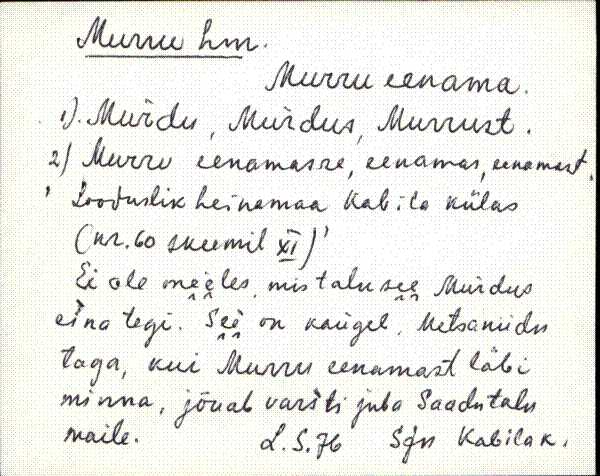 Murru hm.
Murru eenama.
1). Murdu, Murdus, Murrust.
2) Murru eenamasse, eenamas, eenamast.
' Looduslik heinamaa Kabila külas
(nr. 60 skeemil XI)'
Ei ole meeles, mis talu see Murdus
eina tegi. See on kaugel, Metsaniidu
taga, kui Murru eenamast läbi
minna, jõuab varsti juba Saadu talu
maile. L.S. 76 Sjn Kabila k.